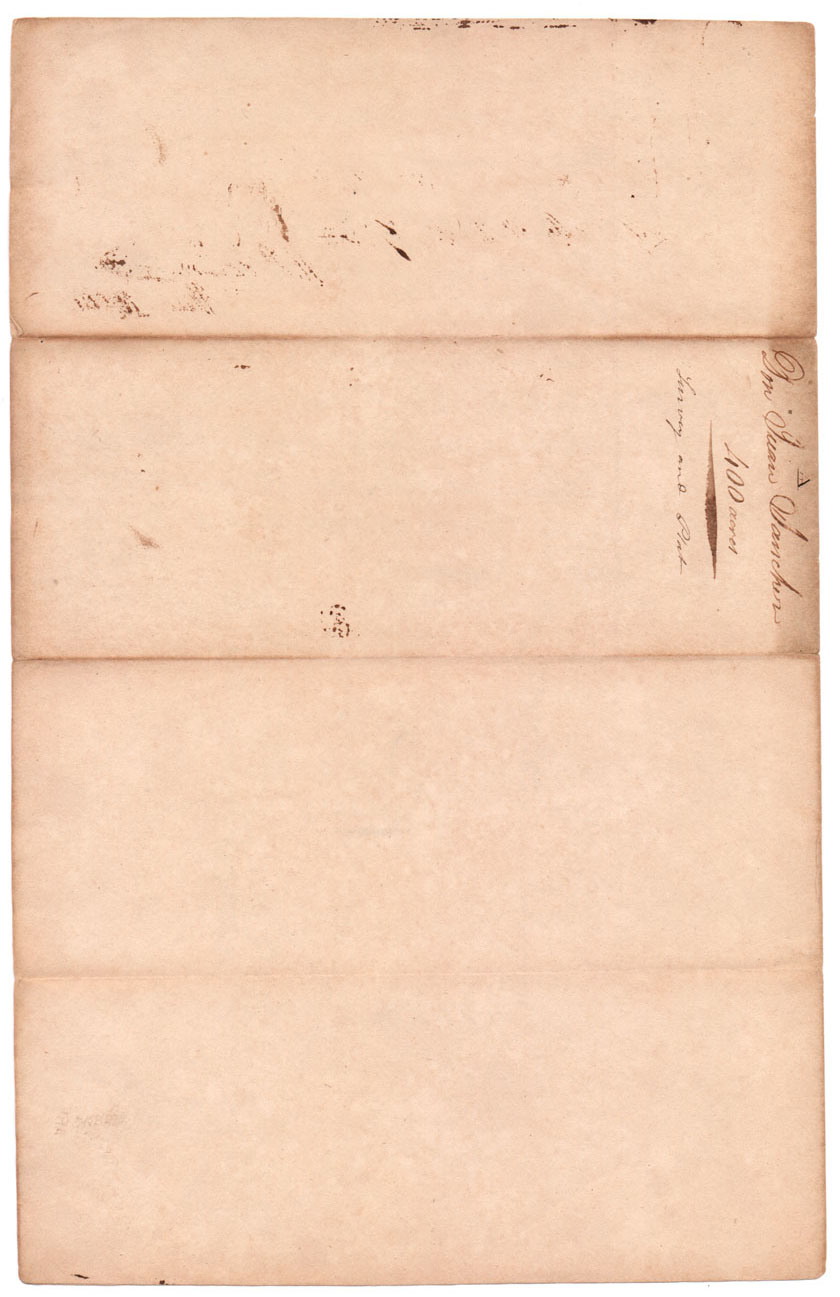 Don Juan Sanchez
400 acres
Survey and Plat